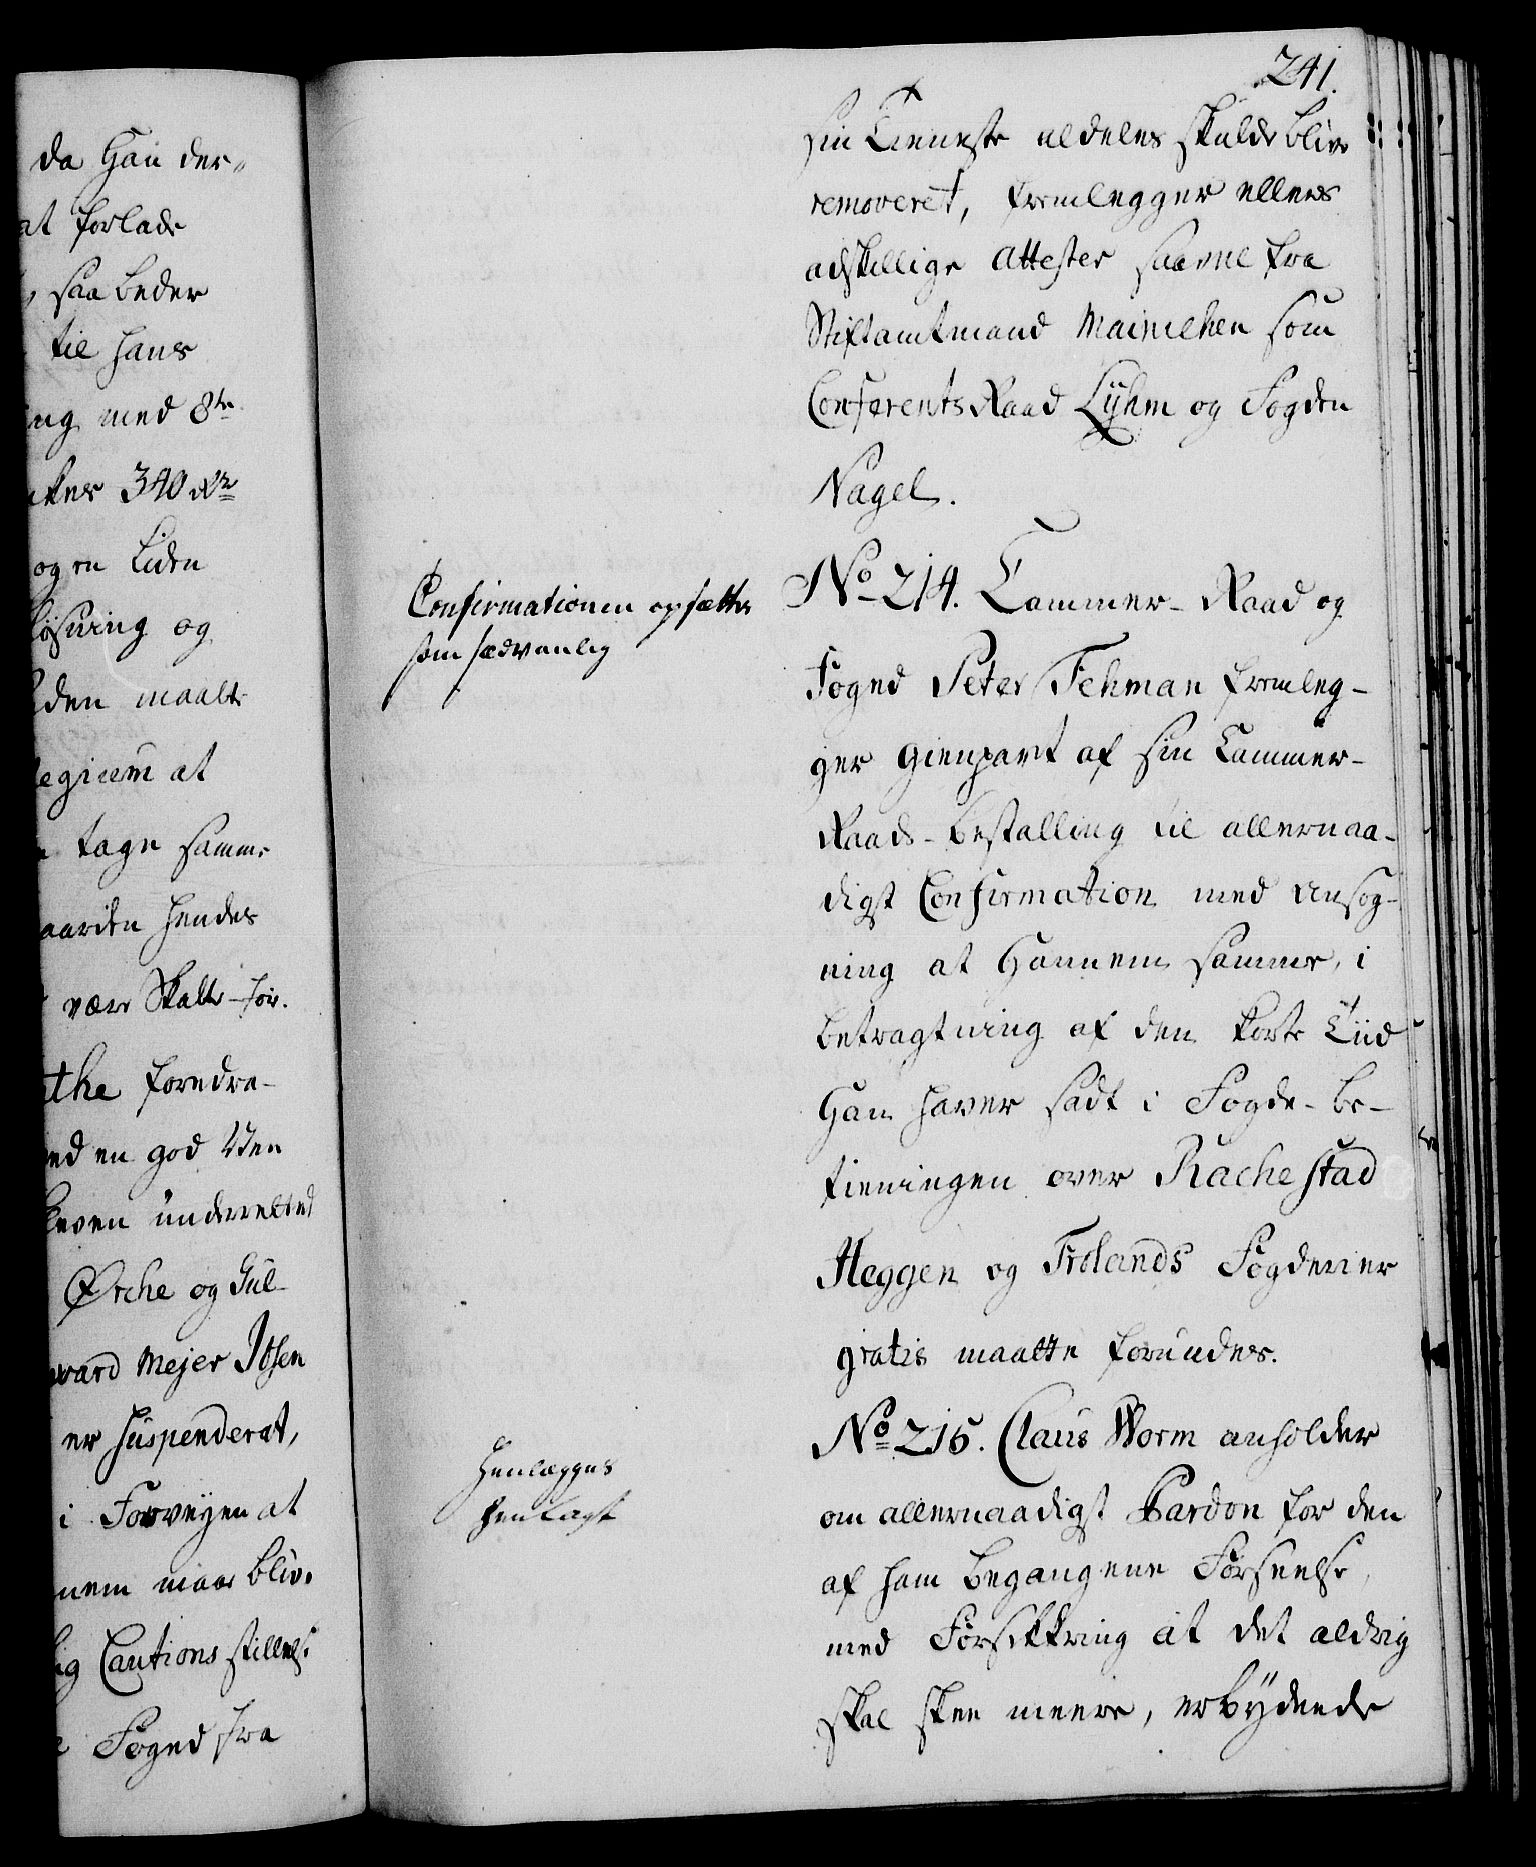 da Han der„
at forlade
saa beder
til hans
ng med 8te
340 Rdr
og en liden
løsning og
den maatte
legium at
tage samme
aarden hendes
være Skatte-for.
the foredra-
ed en god Ven
leven underrettet
Ørche og Gul-
vard Mejer Ibsen
er suspenderet,
i Forveyen at
nem maae blive
ig Cautions stillelse
Foged fra
241.
sin Tieneste aldeles skulde blive
removeret, fremlegger ellers
adskillige Attester saavel fra
Stiftamtmand Mainichen som
Conferents Raad Lyhm og Fogden
Nagel.
Confirmationen opsættes
som sædvanlig
No 214. Cammer-Raad og
Foged Peter Fehman fremleg-
ger gienpart af sin Cammer-
Raads-bestalling til allernaa-
digst Confirmation med ansøg-
ning at Hannem samme, i
betragtning af den korte Tiid
Han haver sadt i Fogde-be-
tieningen over Rachestad
Heggen og Frolands Fogderier
gratis maatte forundes.
Henlægges
henlagt
No 215. Claus Worm anholder
om allernaadigst Pardon for den
af ham begangene Forseelse,
med Forsikkring at det aldrig
skal skee meere, erbydende